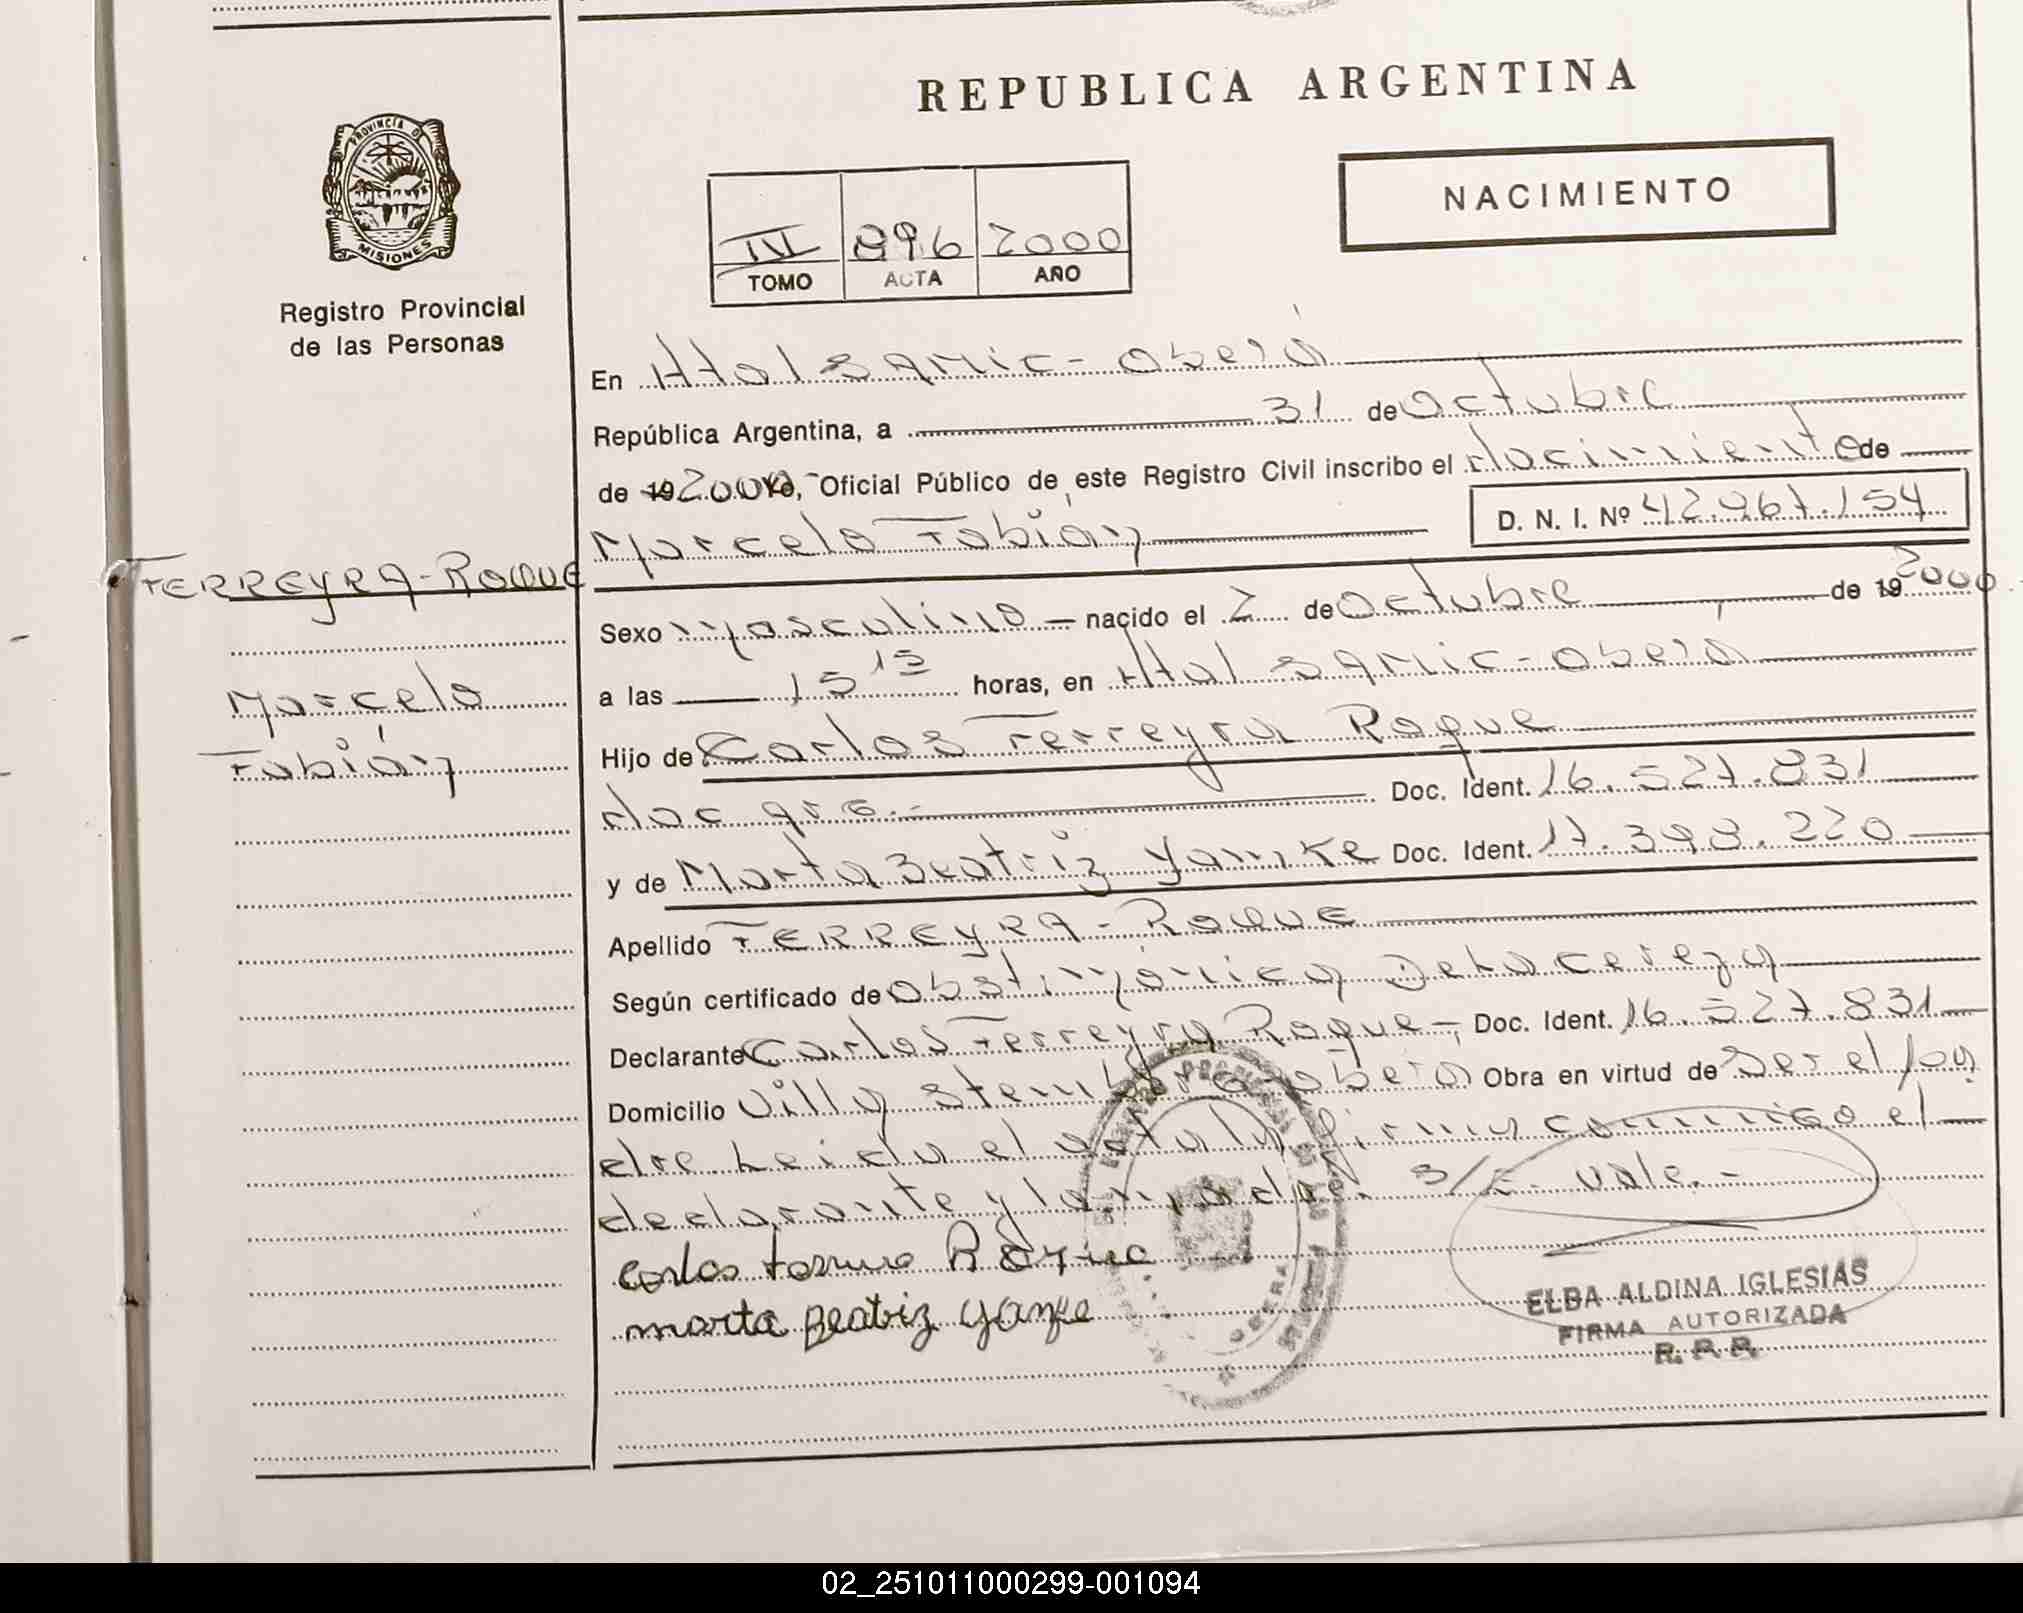 REPUBLICA ARGENTINA
PROVINCIA DE
MISIONES
Registro Provincial
de las Personas
NACIMIENTO
IV 896 2000
TOMO ACTA AÑO
En Htal samic - oberá
República Argentina, a 31 de Octubre
de 19 2000 Yo, Oficial Público de este Registro Civil inscribo el Nacimiento de
Marcelo Fabián D. N. I. Nº 42.967.154
FERREYRA - ROQUE
Marcelo
Fabián
Sexo masculino nacido el 2 de Octubre de 19 2000
a las 15 15 horas, en Htal samic - oberá
Hijo de Carlos Ferreyra Roque
Nac. Doc. Ident. 16.527.831
y de Marta Beatriz Yamke Doc. Ident. 17.393.220
Apellido FERREYRA - ROQUE
Según certificado de obst.
Declarante Carlos Ferreyra Roque - Doc. Ident. 16.527.831
Domicilio Villa oberá Obra en virtud de ser el pa
dre Leida el acta la firma conmigo el
declarante y la madre. S/E. vale. -
Carlos
marta Beatriz yamke
OBERA
ELBA ALDINA IGLESIAS
FIRMA AUTORIZADA
R. P. P.
02_251011000299-001094